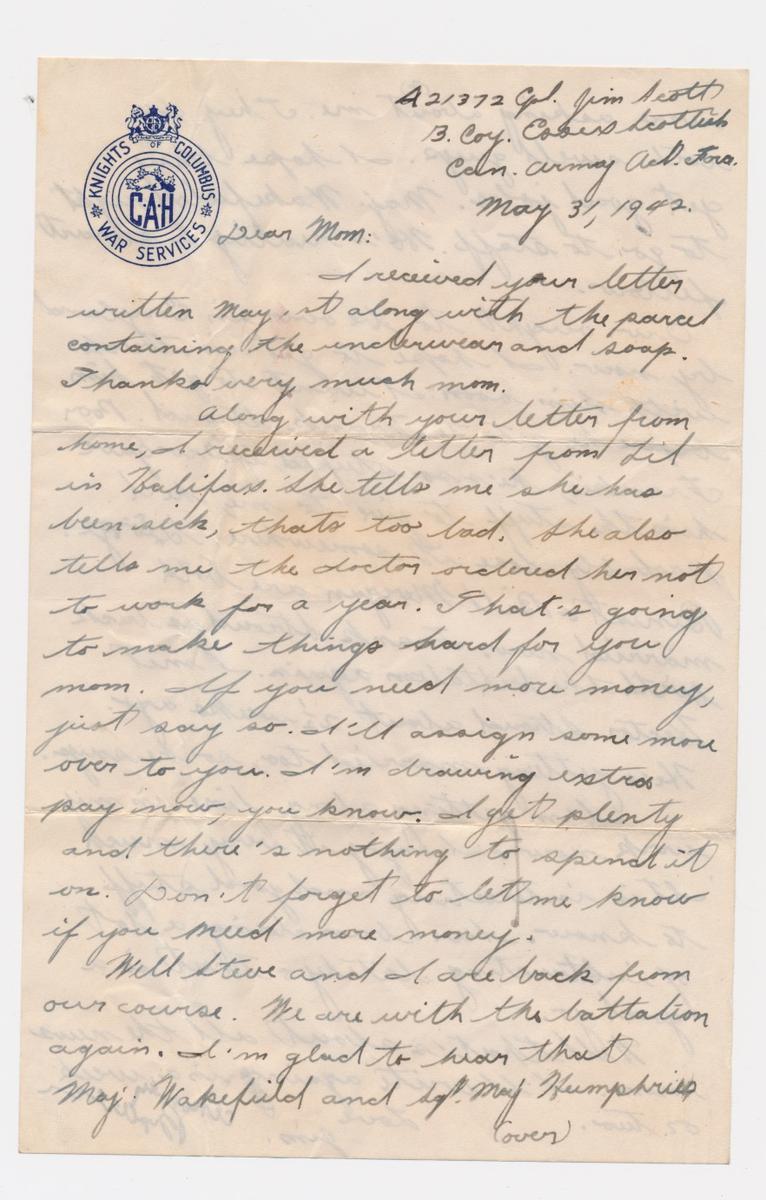 A21372 Cpl. Jim Scott
B. Coy. Essex Scottish
Can. Army
May 31, 1942.
KNIGHTS OF COLUMBUS
C·A·H
WAR SERVICES
Dear Mom:
I received your letter
written May along with the parcel
containing the underwear and soap.
Thanks very much mom.
Along with your letter from
home, I received a letter from Lil
in Halifax. She tells me she has
been sick, thats too bad. She also
tells me the doctor ordered her not
to work for a year. That's going
to make things hard for you
mom. If you need more money,
just say so. I'll assign some more
over to you. I'm drawing extra
pay now, you know. I get plenty
and there's nothing to spend it
on. Don't forget to let me know
if you need more money.
Well Steve and I are back from
our course. We are with the battation
again. I'm glad to hear that
Maj. Wakefield and Maj Humphries
(over)